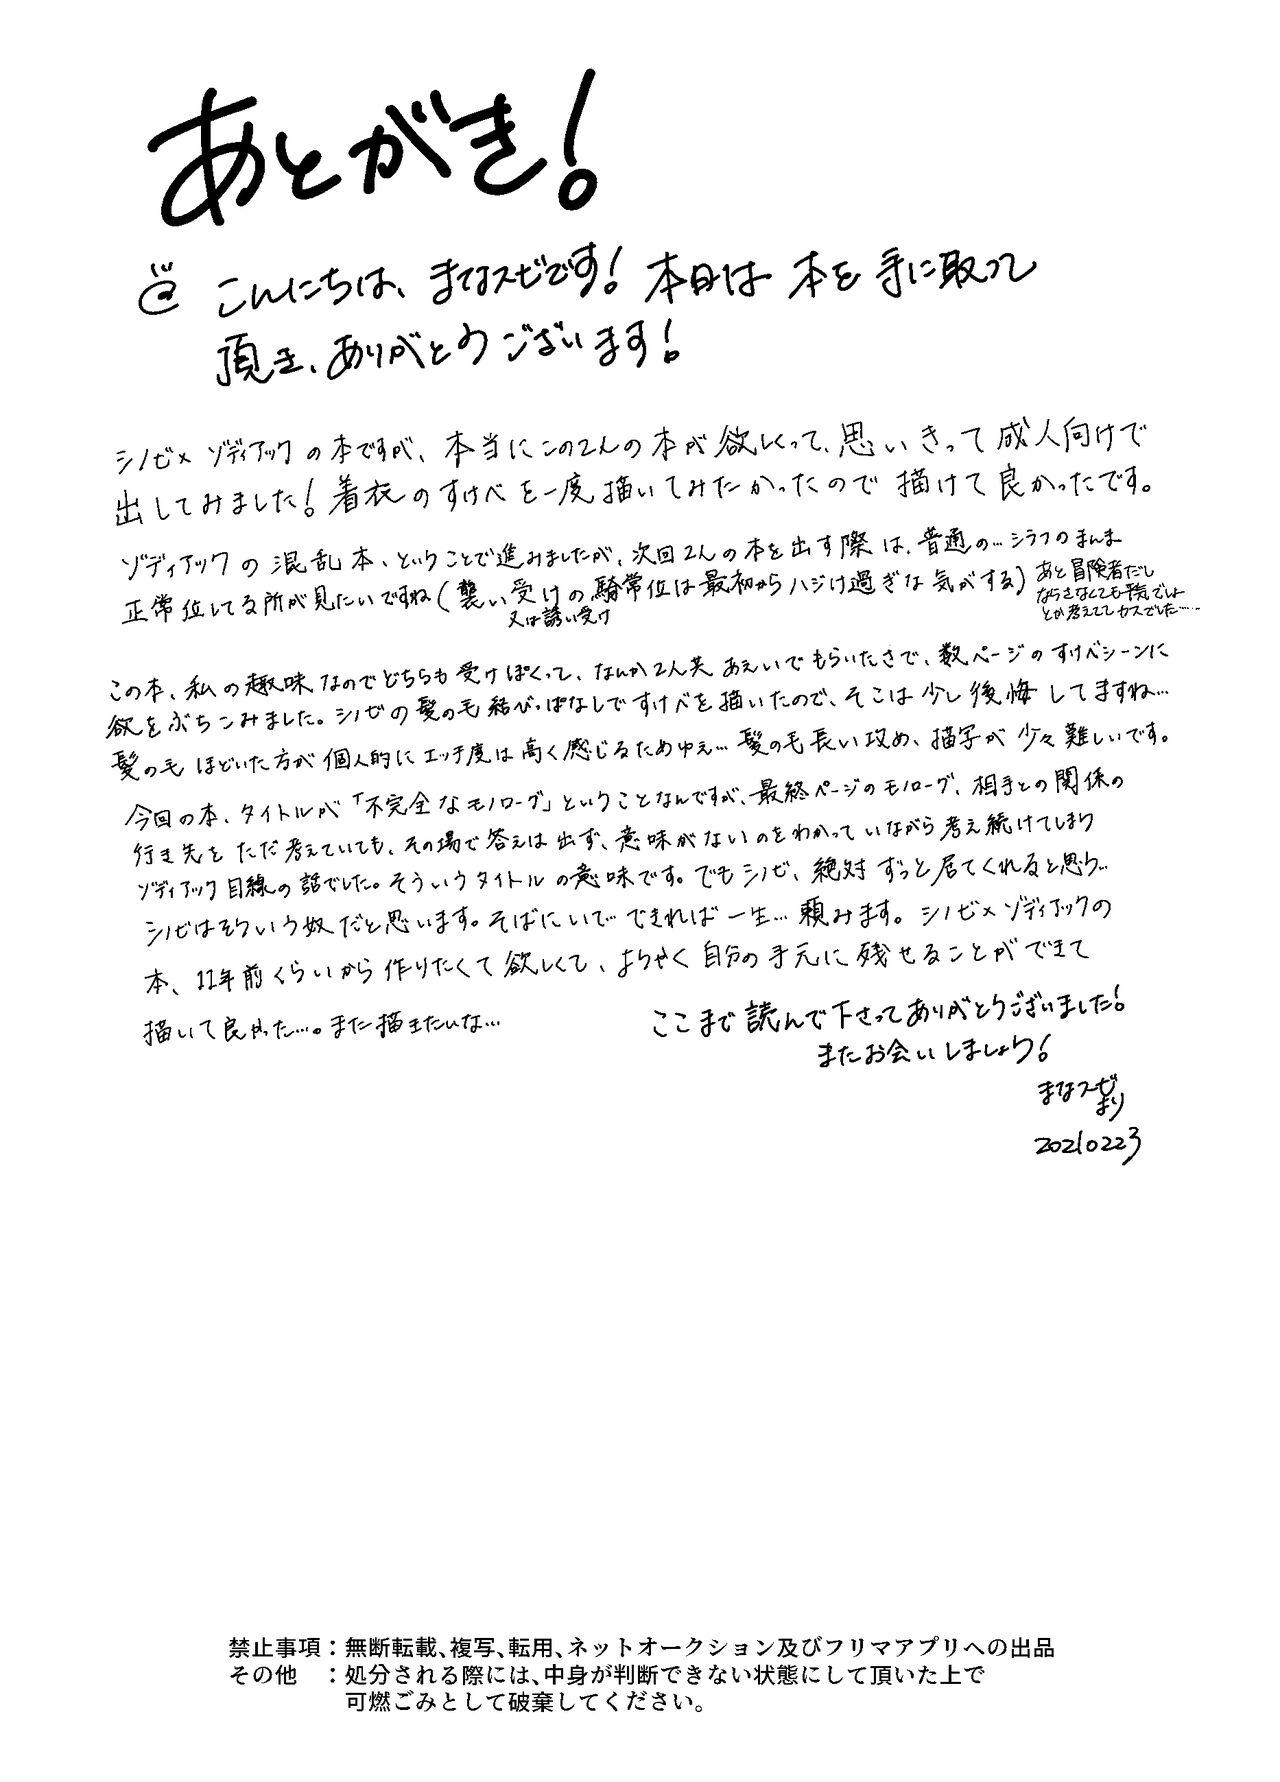 あとがき!
こんにちは、まなスビです! 本日は 本を 手に取って
頂き、ありがとうございます!
シノビ×ゾディアックの本ですが、本当にこの2人の本が欲しくって、思いきって成人向けで
出してみました! 着衣のすけべを一度描いてみたかったので描けて良かったです。
ゾディアックの混乱本、ということで進みましたが、次回2人の本を出す際は、普通の…シラフのまんま
正常位してる所が見たいですね(襲い受けの騎常位は最初からハジけ過ぎな気がする)
又は誘い受け
あと冒険者だし
ならさなくても平気でしょ
とか考えててカスでした……
この本、私の趣味なのでどちらも受けぽくって、なんか2人共あえいでもらいたさで、数ページのすけべシーンに
欲をぶちこみました。シノビの髪の毛結びっぱなしですけべを描いたので、そこは少し後悔してますね…
髪の毛ほどいた方が個人的にエッチ度は高く感じるためゆえ…髪の毛長い攻め、描写が少々難しいです。
今回の本、タイトルが「不完全なモノローグ」ということなんですが、最終ページのモノローグ、相手との関係の
行き先をただ考えていても、その場で答えは出ず、意味がないのをわかっていながら考え続けてしまう
ゾディアック目線の話でした。そういうタイトルの意味です。でもシノビ、絶対ずっと居てくれると思う…
シノビはそういう奴だと思います。そばにいて できれば一生…頼みます。シノビ×ゾディアックの
本、11年前くらいから作りたくて欲しくて、ようやく自分の手元に残せることができて
描いて良かった…。また描きたいな…
ここまで読んで下さってありがとうございました!
またお会いしましょう!
まなスビ
より
20210223
禁止事項：無断転載、複写、転用、ネットオークション及びフリマアプリへの出品
その他　：処分される際には、中身が判断できない状態にして頂いた上で
可燃ごみとして破棄してください。